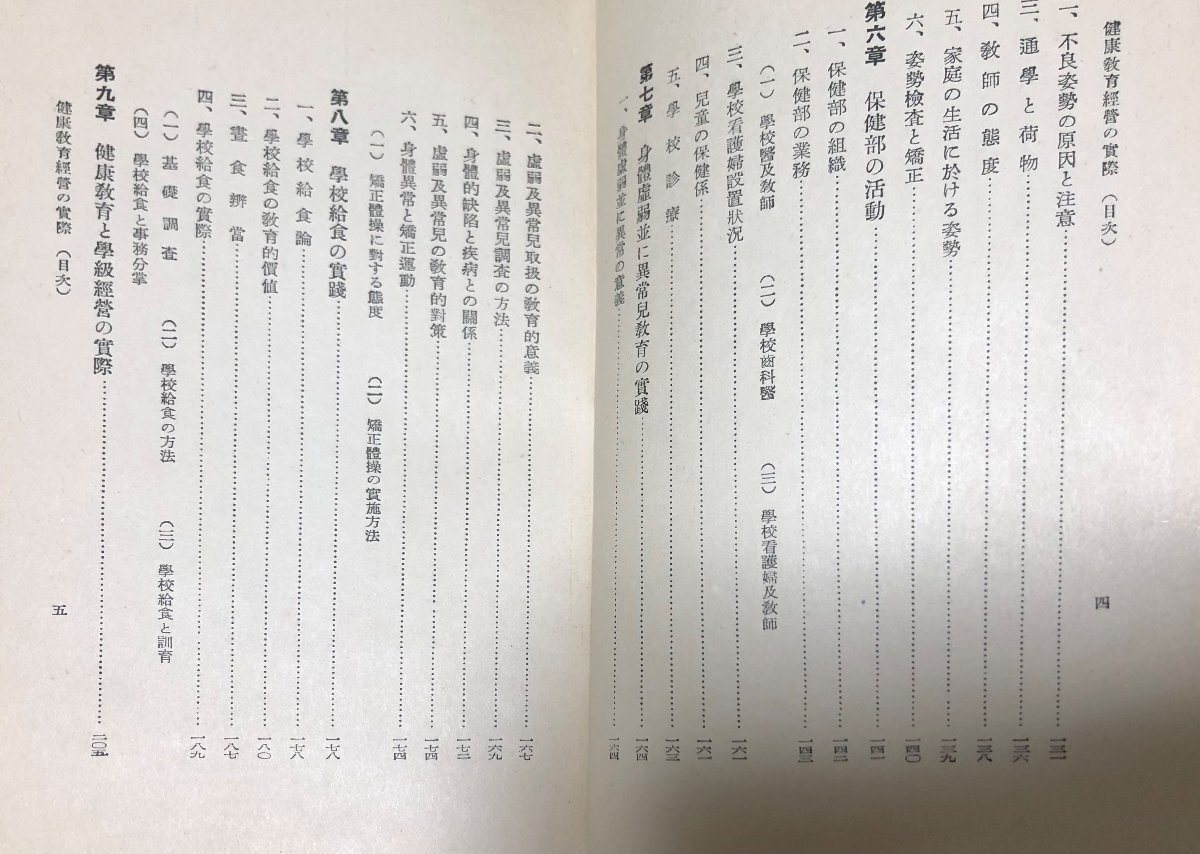 健康敎育經營の實際 (目次)
四
一、不良姿勢の原因と注意…一三一
三、通學と荷物…一三六
四、敎師の態度…一三八
五、家庭の生活に於ける姿勢…一三九
六、姿勢檢査と矯正…一四〇
第六章 保健部の活動…一四一
一、保健部の組織…一四二
二、保健部の業務…一四三
(一) 學校醫及敎師 (二) 學校齒科醫 (三) 學校看護婦及敎師
三、學校看護婦設置狀況…一六一
四、兒童の保健係…一六一
五、學校診療…一六三
第七章 身體虛弱並に異常兒敎育の實踐…一六四
一、身體虛弱並に異常の意義…一六四
二、虛弱及異常兒取扱の敎育的意義…一六七
三、虛弱及異常兒調査の方法…一六九
四、身體的缺陷と疾病との關係…一七二
五、虛弱及異常兒の敎育的對策…一七四
六、身體異常と矯正運動…一七四
(一) 矯正體操に對する態度 (二) 矯正體操の實施方法
第八章 學校給食の實踐…一七八
一、學校給食論…一七八
二、學校給食の敎育的價値…一八〇
三、晝食辨當…一八七
四、學校給食の實際…一八九
(一) 基礎調査 (二) 學校給食の方法 (三) 學校給食と訓育
(四) 學校給食と事務分掌
第九章 健康敎育と學級經營の實際…二〇五
健康敎育經營の實際 (目次)
五